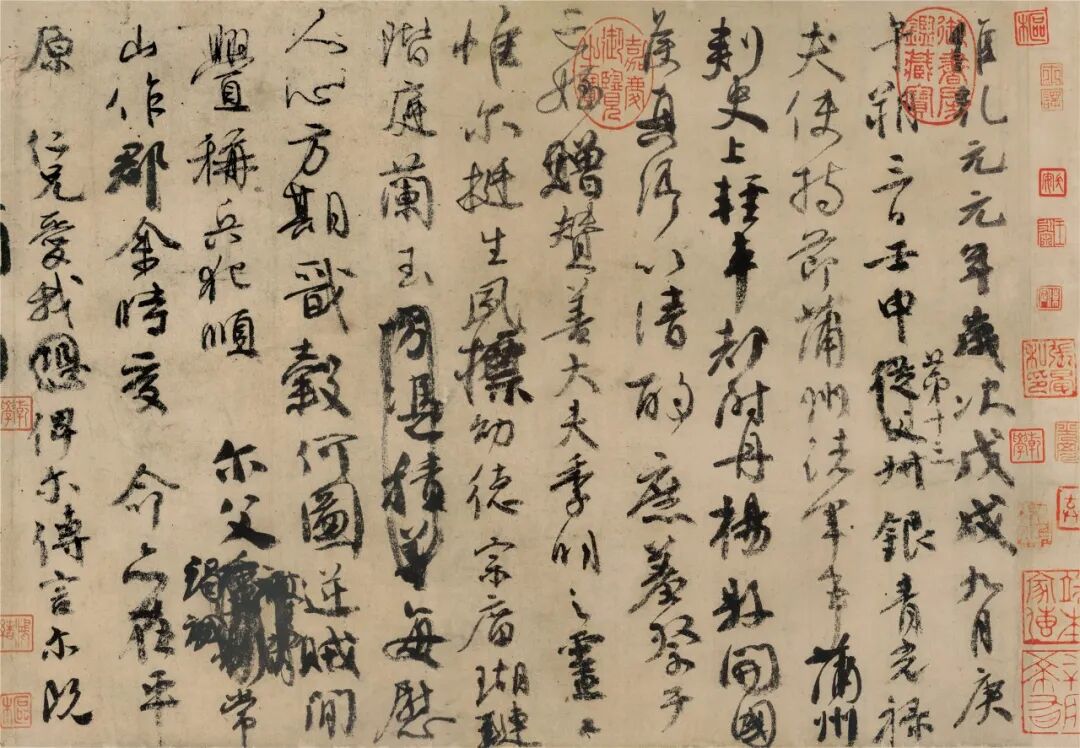 維乾元元年歲次戊戌九月庚
午朔三日壬申第十三從父叔銀青光祿
夫使持節蒲州諸軍事蒲州
刺史上輕車都尉丹楊縣開國
侯真卿以清酌庶羞祭于
亡姪贈贊善大夫季明之靈曰
惟尔挺生夙標幼德宗廟瑚璉
階庭蘭玉方憑積善每慰
人心方期戩穀何圖逆賊閒
舋稱兵犯順尔父竭誠常
山作郡余時受命亦在平
原仁兄愛我恐俾尔傳言尔既
御書房鑑藏寶
嘉慶御覽之寶